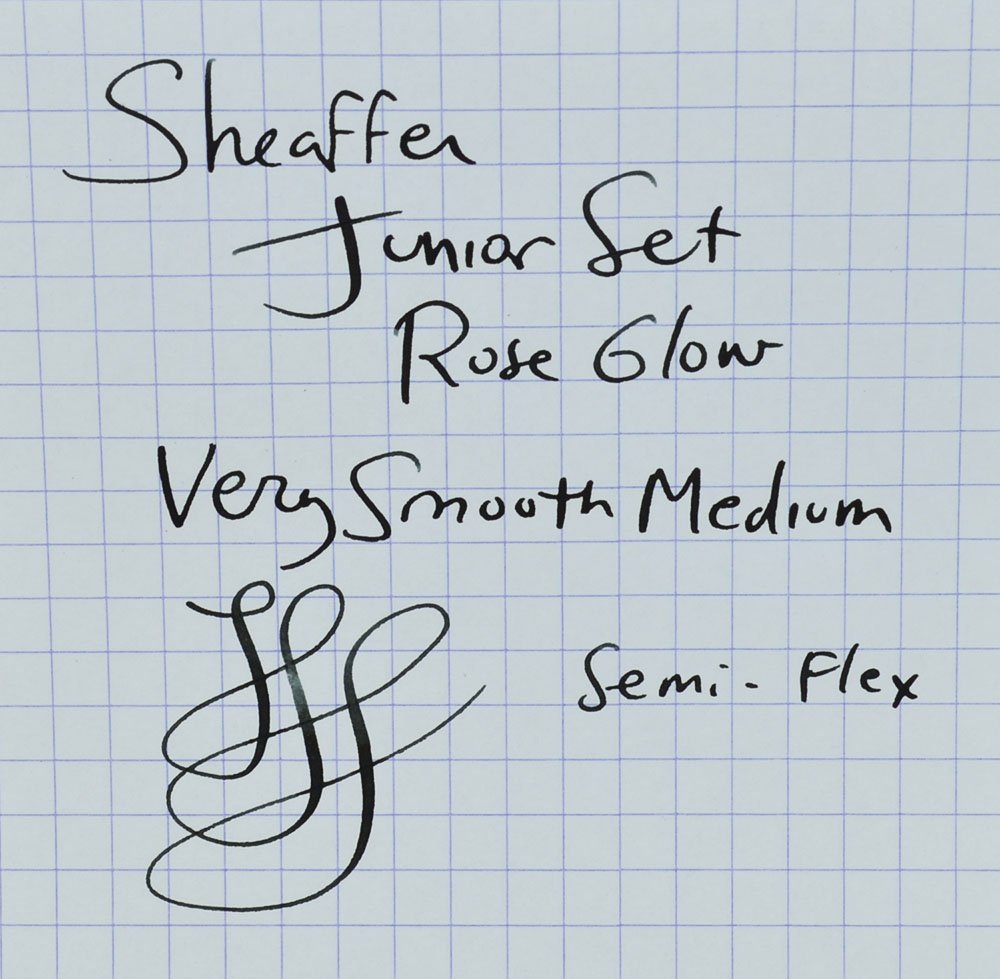 Sheaffer
Junior Set
Rose Glow
Very Smooth Medium
Semi-Flex